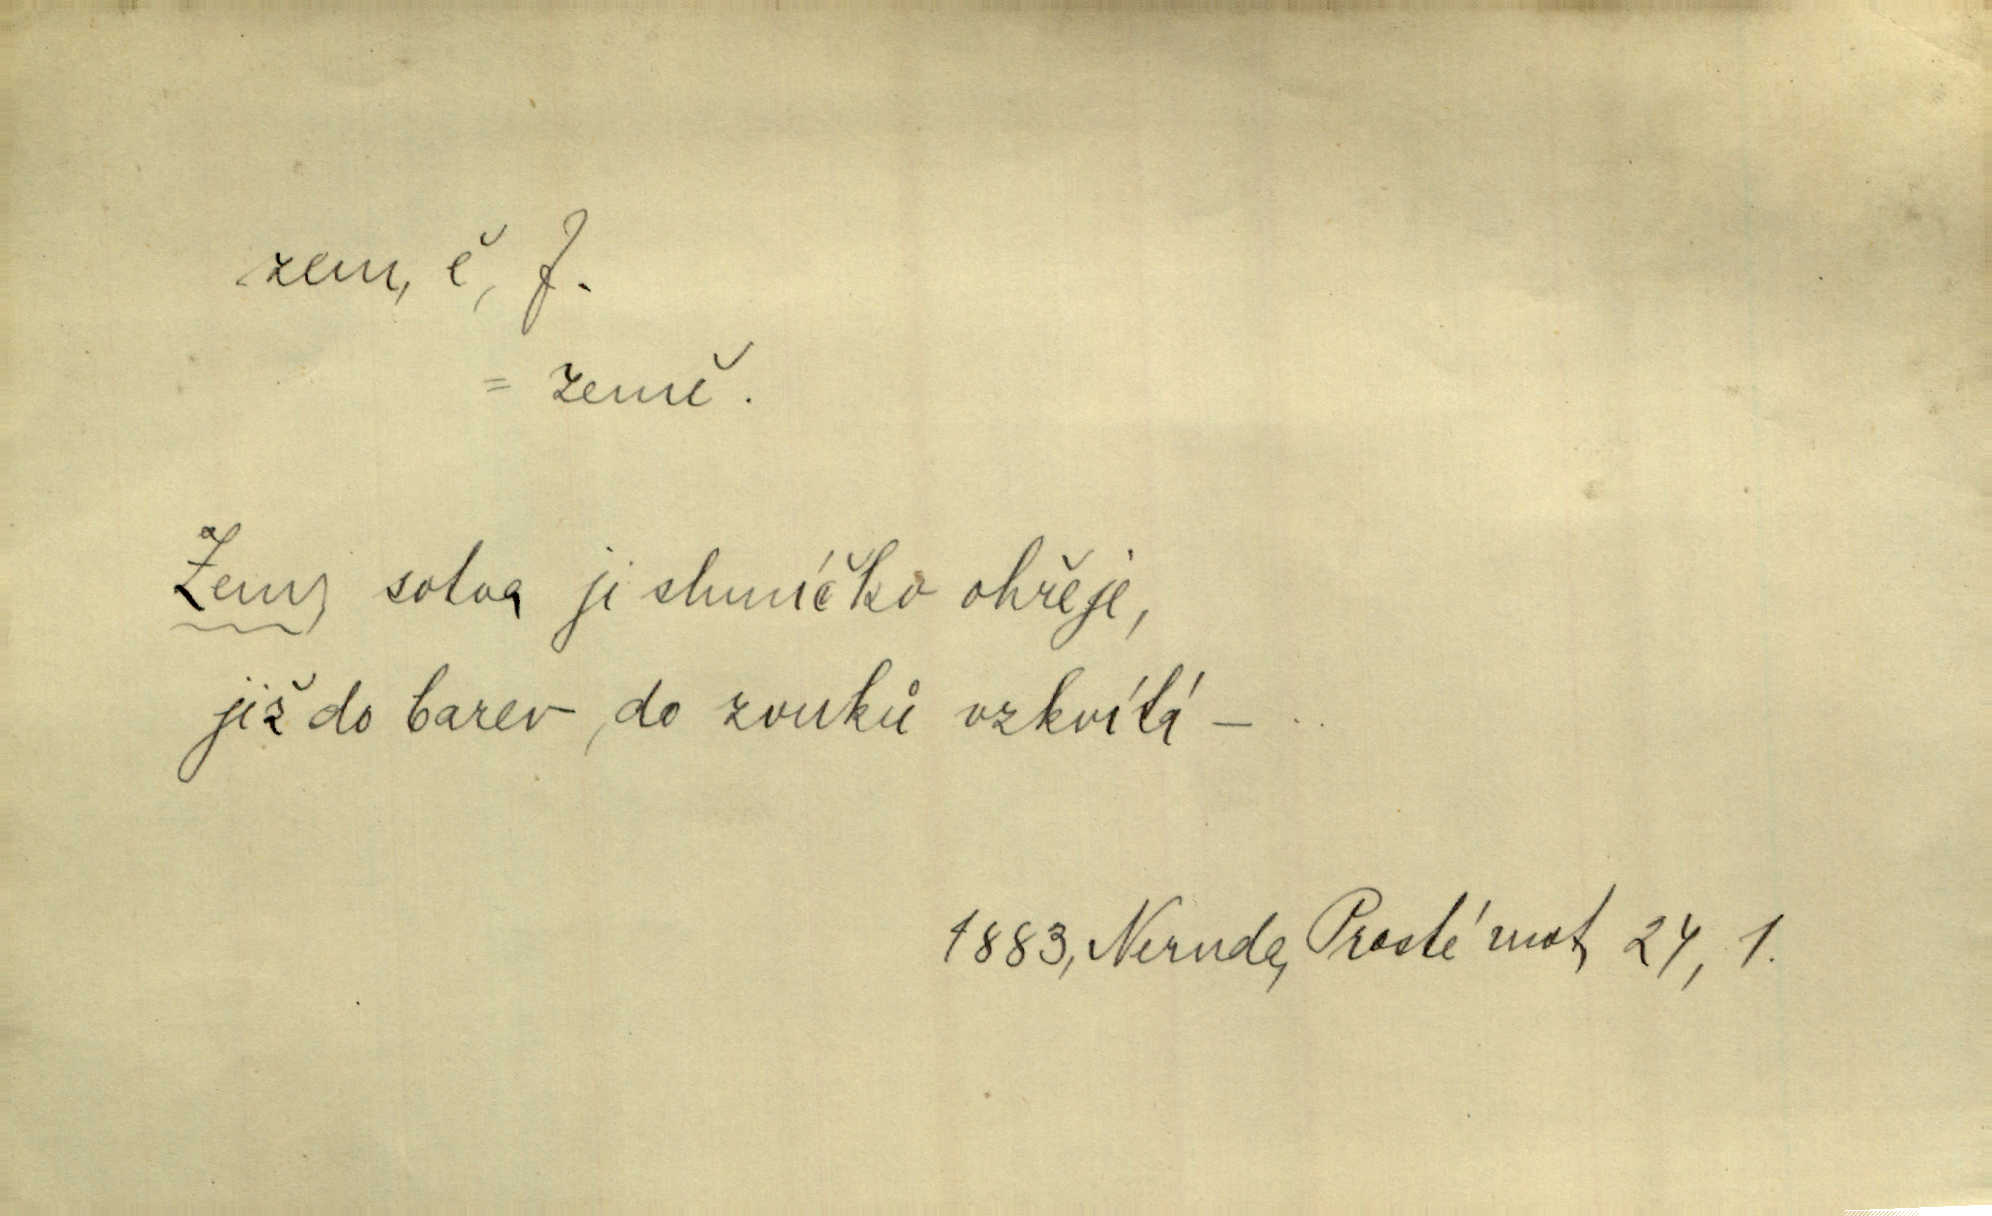 zem, ě, f.
= země.
Zem, sotva ji sluníčko ohřeje,
již do barev, do zvuků vzkvítá – ..
1883, Neruda, Prosté mot, 24, 1.